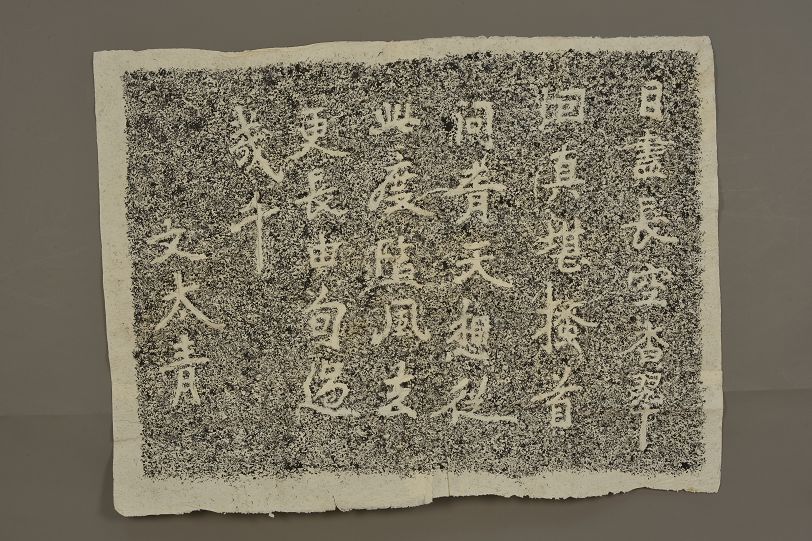 目盡長空杳翠
烟真堪搔首
問青天想從
此度臨風去
更長由旬過
幾千
文大青